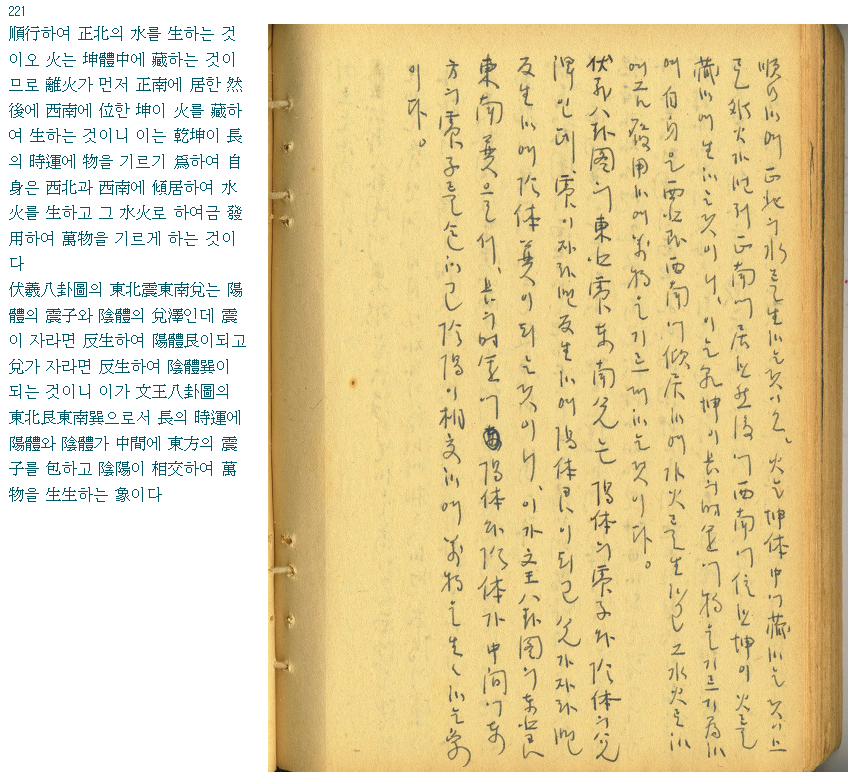 221
順行하여 正北의 水를 生하는 것
이오 火는 坤體中에 藏하는 것이
므로 離火가 먼저 正南에 居한 然
後에 西南에 位한 坤이 火를 藏하
여 生하는 것이니 이는 乾坤이 長
의 時運에 物을 기르기 爲하여 自
身은 西北과 西南에 傾居하여 水
火를 生하고 그 水火로 하여금 發
用하여 萬物을 기르게 하는 것이
다
伏羲八卦圖의 東北震東南兌는 陽
體의 震子와 陰體의 兌澤인데 震
이 자라면 反生하여 陽體艮이되고
兌가 자라면 反生하여 陰體巽이
되는 것이니 이가 文王八卦圖의
東北艮東南巽으로서 長의 時運에
陽體와 陰體가 中間에 東方의 震
子를 包하고 陰陽이 相交하여 萬
物을 生生하는 象이다
順行하여 正北의 水를 生하는 것이오, 火는 坤体中에 藏하는 것이므
로 離火가 먼저 正南에 居한 然後에 西南에 位한 坤이 火를
藏하여 生하는 것이니, 이는 乾坤이 長의 時運에 物을 기르기 爲하
여 自身은 西北과 西南에 傾居하여 水火를 生하고 그 水火로 하
여금 發用하여 萬物을 기르게 하는 것이다。
伏羲八卦圖의 東北震東南兌는 陽体의 震子와 陰体의 兌
澤인데, 震이 자라면 反生하여 陽体艮이 되고 兌가 자라면
反生하여 陰体巽이 되는 것이니, 이가 文王八卦圖의 東北艮
東南巽으로서, 長의 時運에 陽体와 陰体가 中間에 東
方의 震子를 包하고 陰陽이 相交하여 萬物을 生々하는 象
이다。